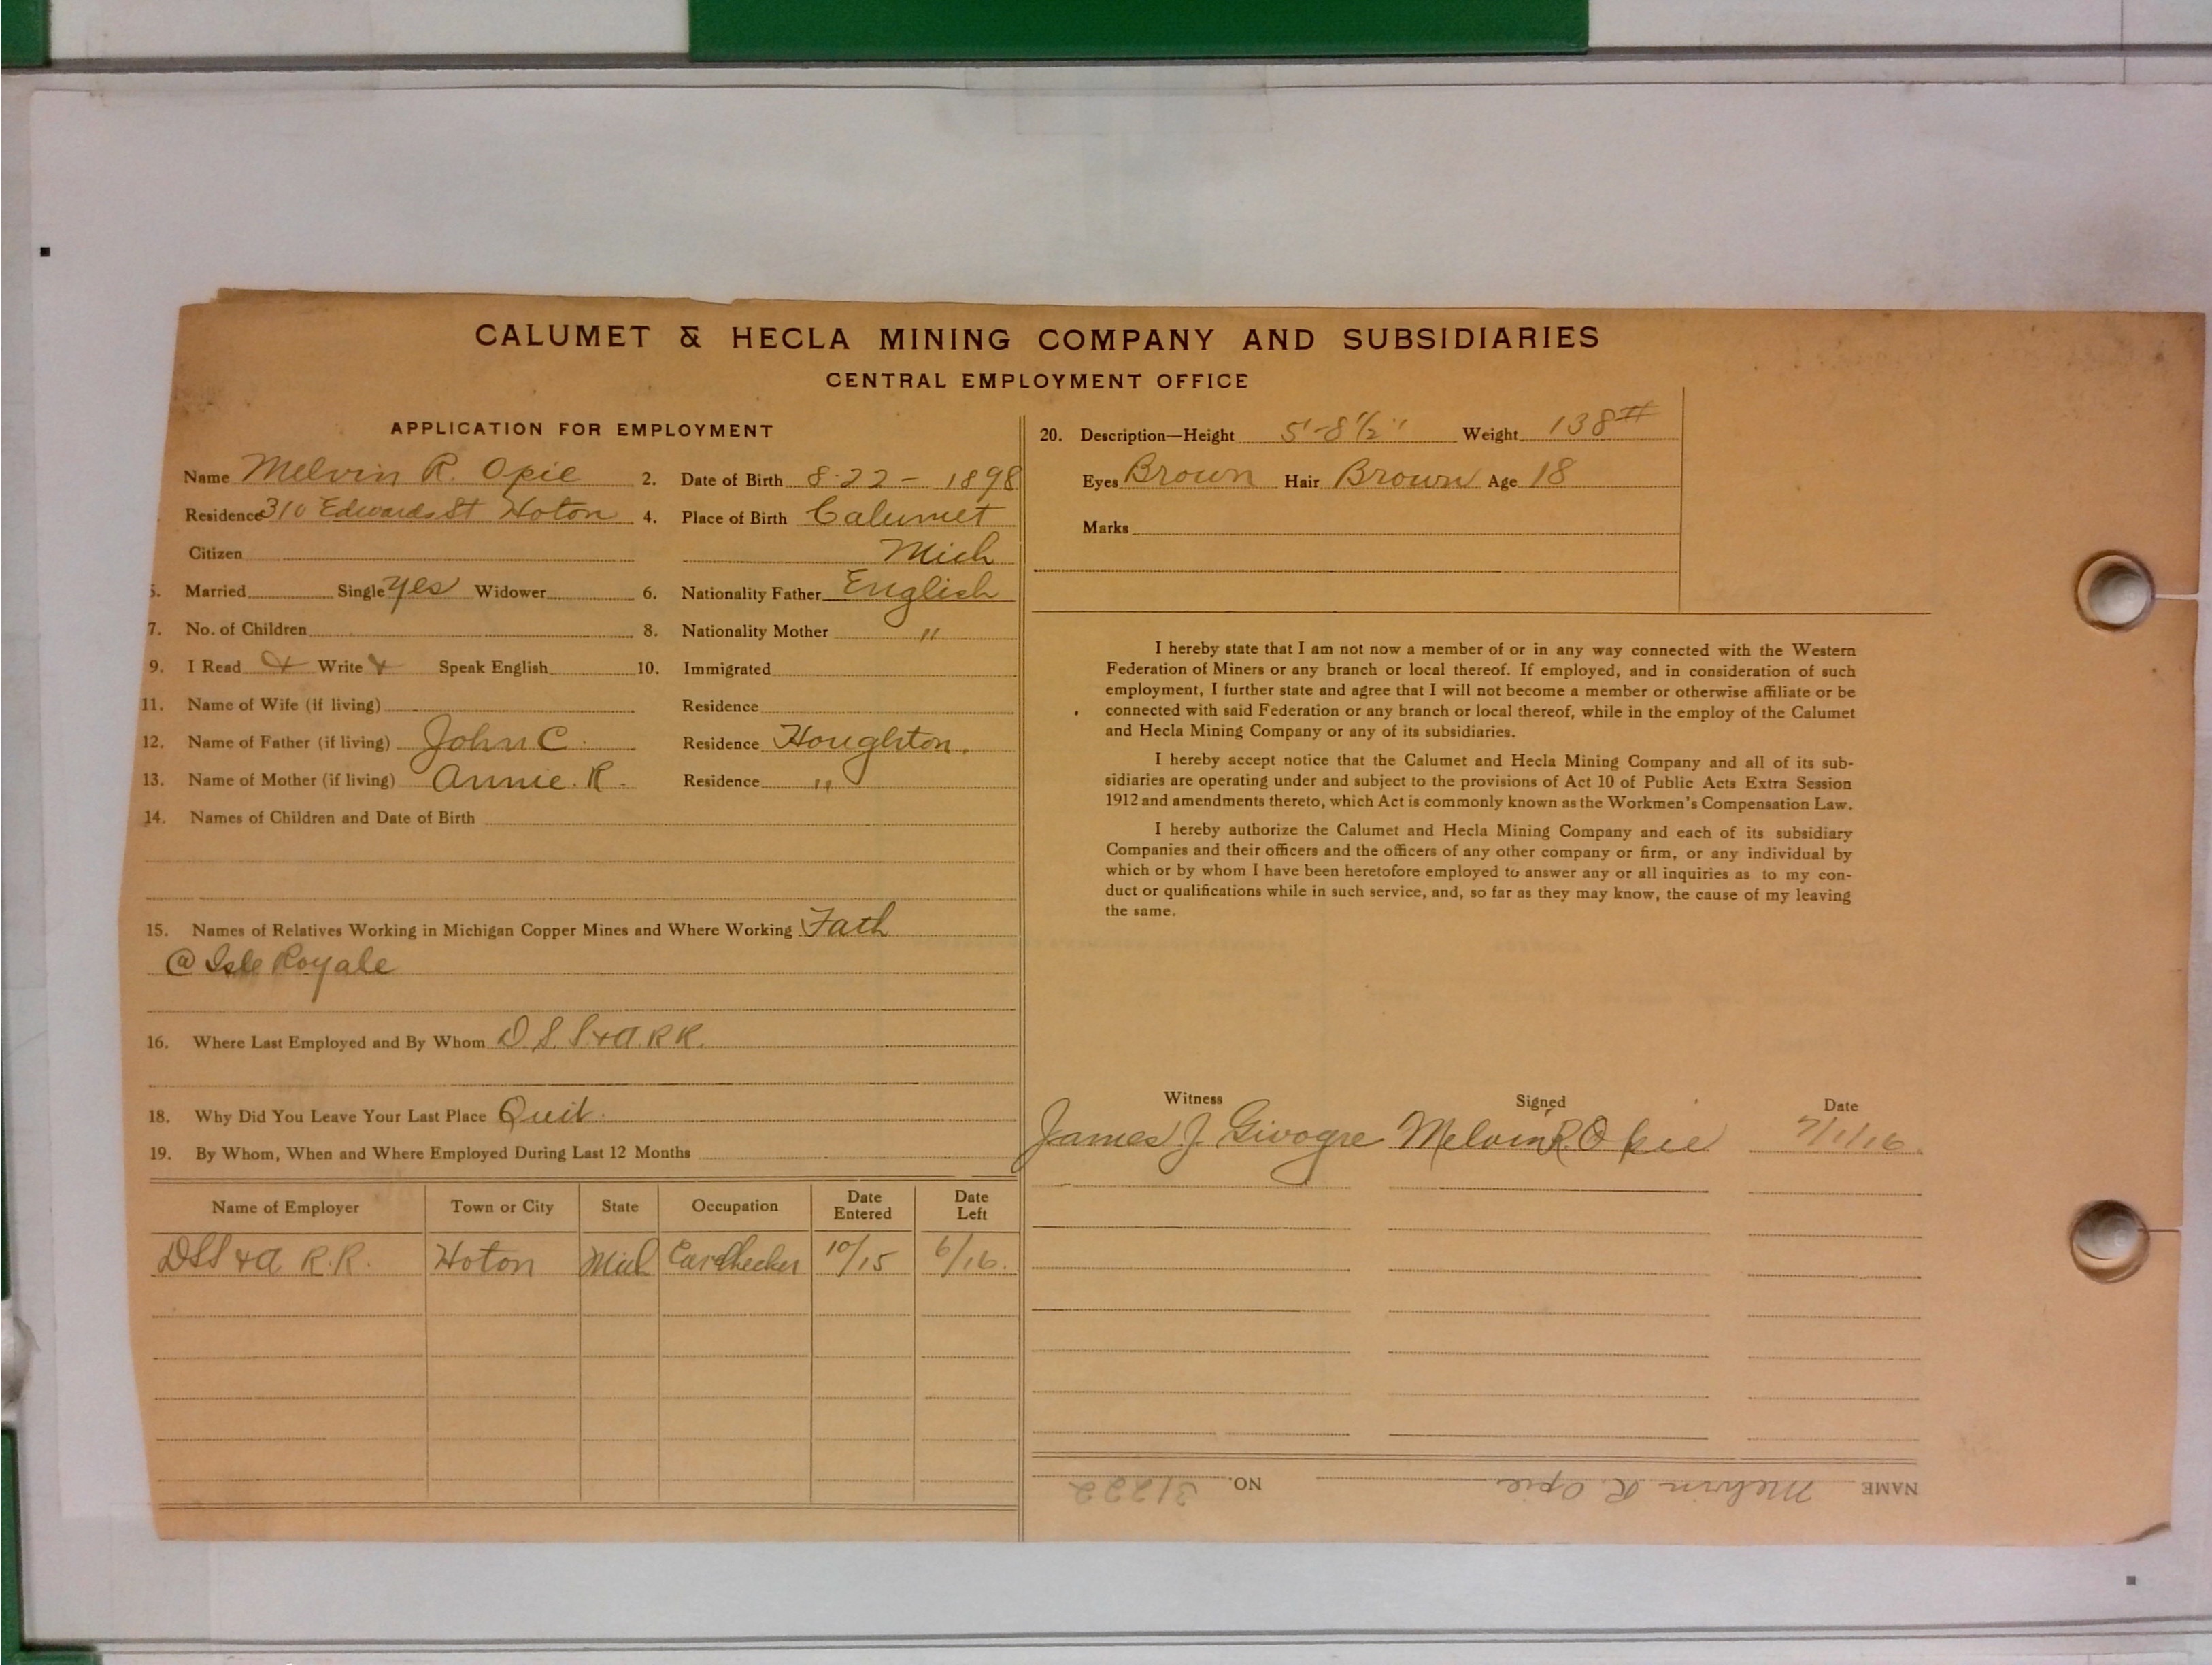 CALUMET & HECLA MINING COMPANY AND SUBSIDIARIES
CENTRAL EMPLOYMENT OFFICE
APPLICATION FOR EMPLOYMENT
Name Melvin R. Opie 2. Date of Birth 8-22-1898
Residence 310 Edwards St Hoton 4. Place of Birth Calumet
Citizen Mich
5. Married Single yes Widower 6. Nationality Father English
7. No. of Children 8. Nationality Mother "
9. I Read & Write Speak English 10. Immigrated
11. Name of Wife (if living) Residence
12. Name of Father (if living) John C. Residence Houghton.
13. Name of Mother (if living) Annie. R. Residence "
14. Names of Children and Date of Birth
15. Names of Relatives Working in Michigan Copper Mines and Where Working Fath
@ Isle Royale
16. Where Last Employed and By Whom D.S.S.&A.R.R.
18. Why Did You Leave Your Last Place Quit.
19. By Whom, When and Where Employed During Last 12 Months
Name of Employer Town or City State Occupation Date Entered Date Left
DSS&A R.R. Hoton Mich Carchecker 10/15 6/16.
20. Description—Height 5'-8 1/2" Weight 138#
Eyes Brown Hair Brown Age 18
Marks
I hereby state that I am not now a member of or in any way connected with the Western
Federation of Miners or any branch or local thereof. If employed, and in consideration of such
employment, I further state and agree that I will not become a member or otherwise affiliate or be
connected with said Federation or any branch or local thereof, while in the employ of the Calumet
and Hecla Mining Company or any of its subsidiaries.
I hereby accept notice that the Calumet and Hecla Mining Company and all of its sub-
sidiaries are operating under and subject to the provisions of Act 10 of Public Acts Extra Session
1912 and amendments thereto, which Act is commonly known as the Workmen's Compensation Law.
I hereby authorize the Calumet and Hecla Mining Company and each of its subsidiary
Companies and their officers and the officers of any other company or firm, or any individual by
which or by whom I have been heretofore employed to answer any or all inquiries as to my con-
duct or qualifications while in such service, and, so far as they may know, the cause of my leaving
the same.
Witness Signed Date
James J. Givogre Melvin R. Opie 7/1/16.
NAME Melvin R. Opie NO. 31222